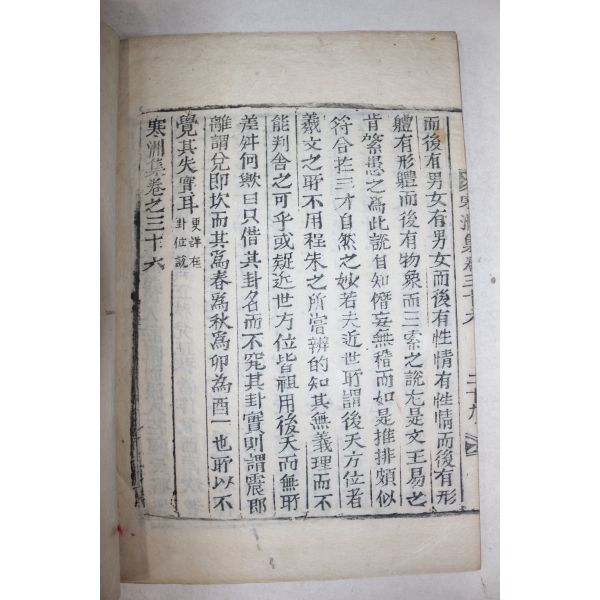 寒洲集卷三十六 二十九
而後有男女有男女而後有性情有性情而後有形
軆有形軆而後有物象而三索之說尤是文王易之
肯綮愚之爲此說自知僭妄無稽而如是推排頗似
符合於三才自然之妙若夫近世所謂後天方位者
羲文之所不用程朱之所當辨的知其無義理而不
能判舍之可乎或疑近世方位皆祖用後天而無所
差舛何歟曰只借其卦名而不究其卦實則謂震卽
離謂兌卽坎而其爲春爲秋爲卯爲酉一也所以不
覺其失實耳 更詳在
卦位說
寒洲集卷之三十六